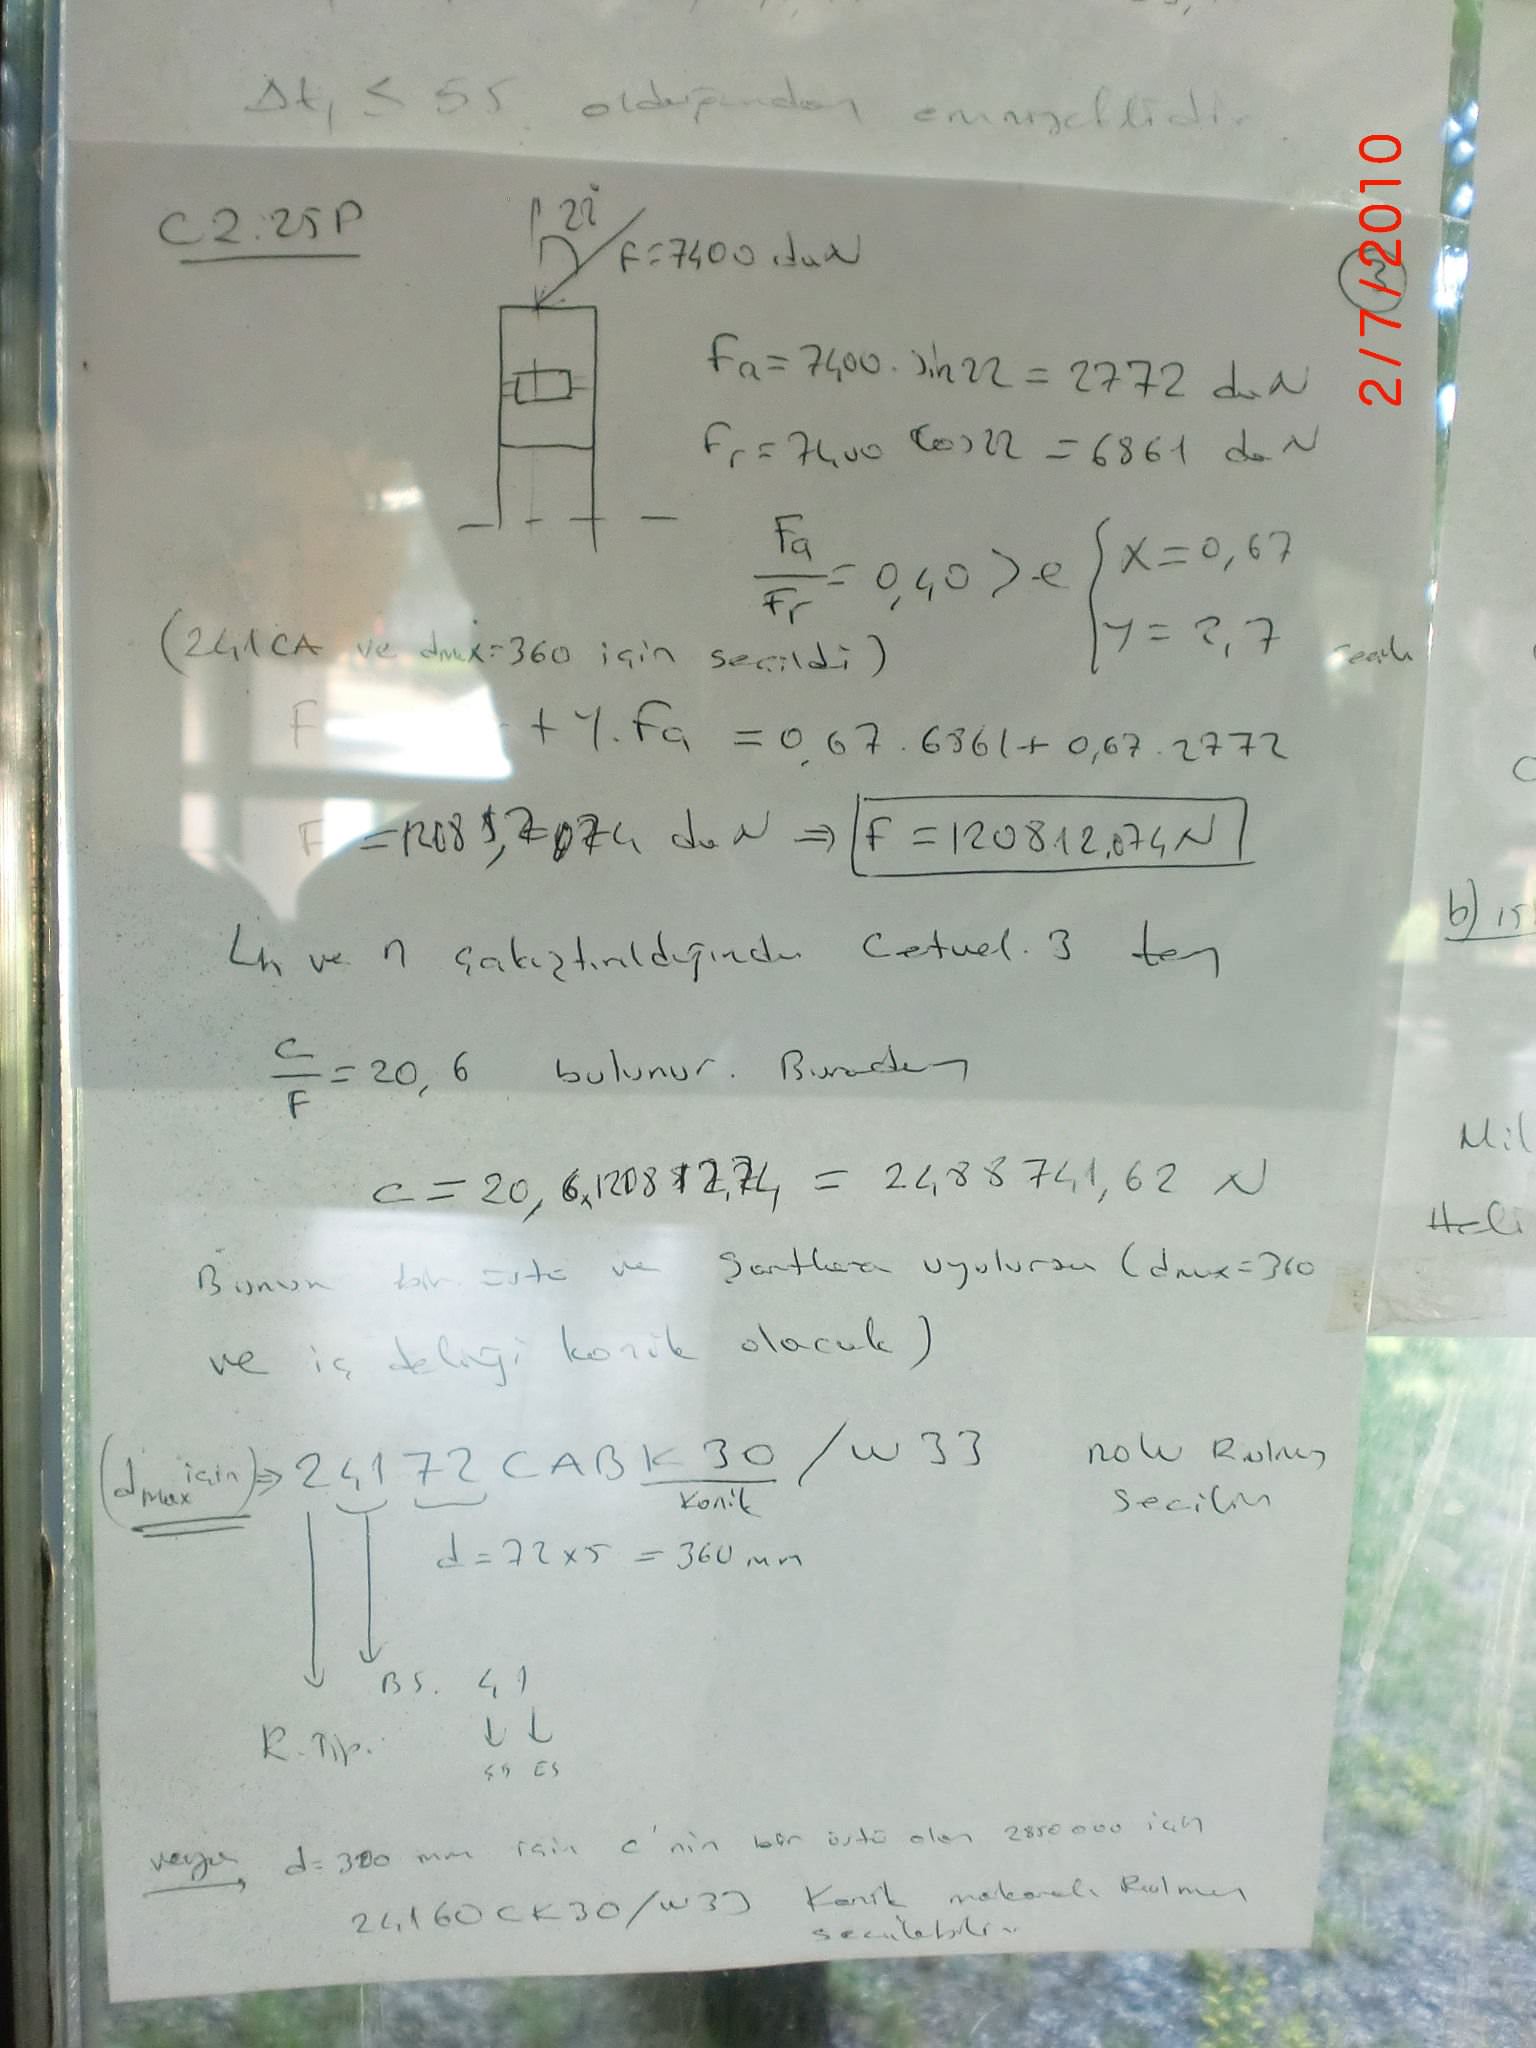 Δt₁ ≤ 55 olduğundan emniyetlidir.
2/7/2010
C2.25P
22°
F=7400 daN
3
Fa=7400.sin22=2772 daN
Fr=7400 Cos22=6861 daN
Fa/Fr=0,40>e { X=0,67
Y=2,7
(241CA ve dmax=360 için seçildi)
F + Y.Fa =0,67.6861+0,67.2772
F = daN ⇒ F=120812,074N
Lh ve n çakıştırıldığında Cetvel.3 ten
C/F=20,6 bulunur. Buradan
C=20,6x120812,74 = 2488741,62 N
Bunun bir üstü ve şartlara uyulursa (dmax=360
ve iç deliği konik olacak)
(dmax için)⇒ 24172CABK30/W33 nolu Rulman
Konik seçilir
d=72x5=360mm
BS. 41
R.Tip.
ÇS ES
veya d= mm için C'nin bir üstü olan 2850000 için
24160CK30/W33 Konik makaralı Rulman
seçilebilir.
b)
Mil